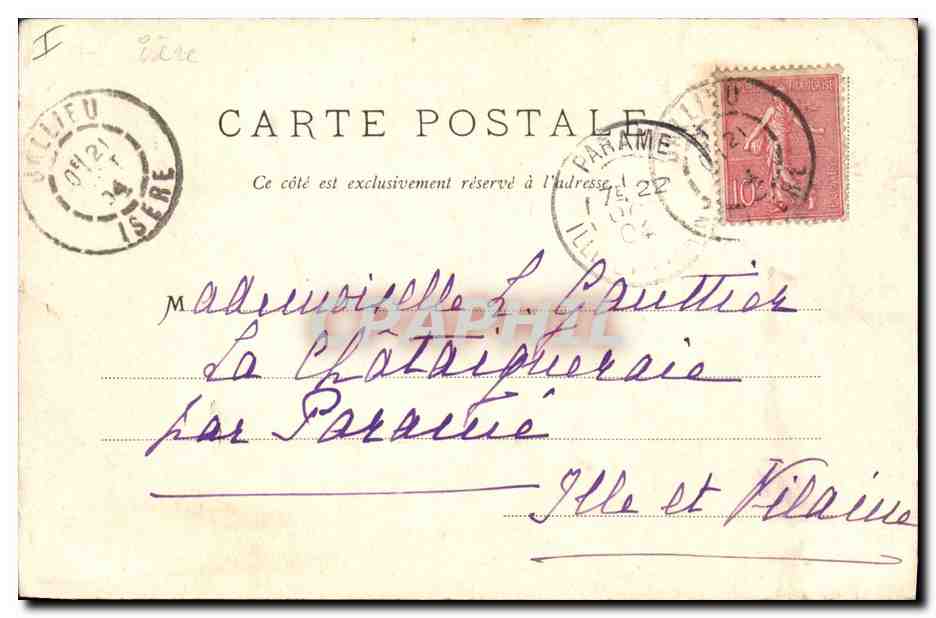 I
Isère
JALLIEU
21
04
ISERE
CARTE POSTALE
Ce côté est exclusivement réservé à l'adresse
PARAMÉ
7E 22
04
10
Mademoiselle L. Gauttier
CPAPHIL
La Châtaigneraie
par Paramé
Ille et Vilaine